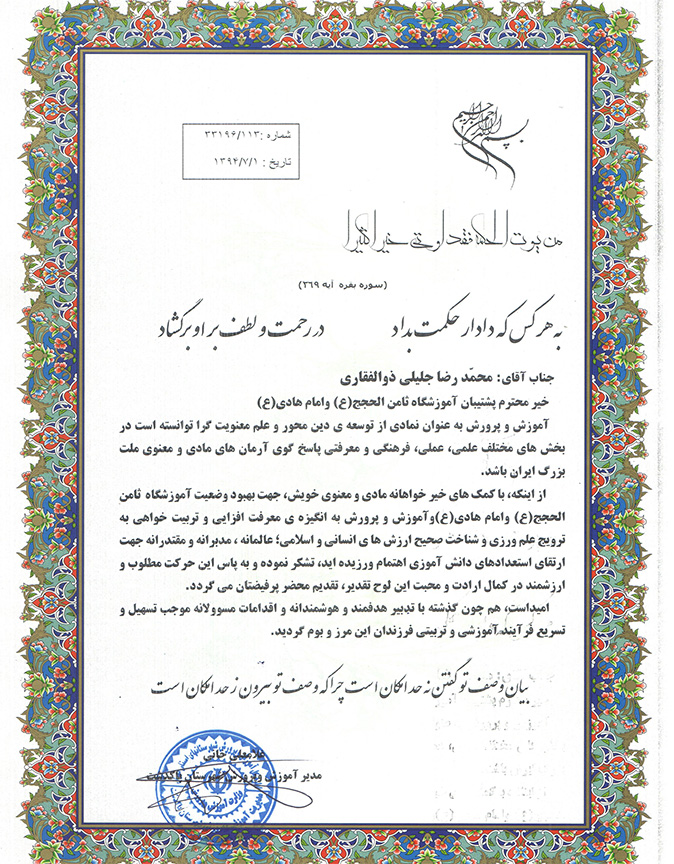 بسم الله الرحمن الرحیم
شماره :۳۳۱۹۶/۱۱۳
تاریخ : ۱۳۹۴/۷/۱
من یوت الحکمة فقد اوتی خیرا کثیرا
(سوره بقره آیه ۲۶۹)
به هر کس که دادار حکمت بداد در رحمت و لطف بر او برگشاد
جناب آقای: محمّد رضا جلیلی ذوالفقاری
خیر محترم پشتیبان آموزشگاه ثامن الحجج(ع) وامام هادی(ع)
آموزش و پرورش به عنوان نمادی از توسعه ی دین محور و علم معنویت گرا توانسته است در
بخش های مختلف علمی، عملی، فرهنگی و معرفتی پاسخ گوی آرمان های مادی و معنوی ملت
بزرگ ایران باشد.
از اینکه، با کمک های خیر خواهانه مادی و معنوی خویش، جهت بهبود وضعیت آموزشگاه ثامن
الحجج(ع) وامام هادی(ع)وآموزش و پرورش به انگیزه ی معرفت افزایی و تربیت خواهی به
ترویج علم ورزی و شناخت صحیح ارزش های انسانی و اسلامی؛ عالمانه ، مدبرانه و مقتدرانه جهت
ارتقای استعدادهای دانش آموزی اهتمام ورزیده اید، تشکر نموده و به پاس این حرکت مطلوب و
ارزشمند در کمال ارادت و محبت این لوح تقدیر، تقدیم محضر پرفیضتان می گردد.
امیداست، هم چون گذشته با تدبیر هدفمند و هوشمندانه و اقدامات مسوولانه موجب تسهیل و
تسریع فرآیند آموزشی و تربیتی فرزندان این مرز و بوم گردید.
بیان وصف تو گفتن نه حد امکان است چرا که وصف تو بیرون ز حد امکان است
غلامعلی خانی
مدیر آموزش و پرورش شهرستان پاکدشت